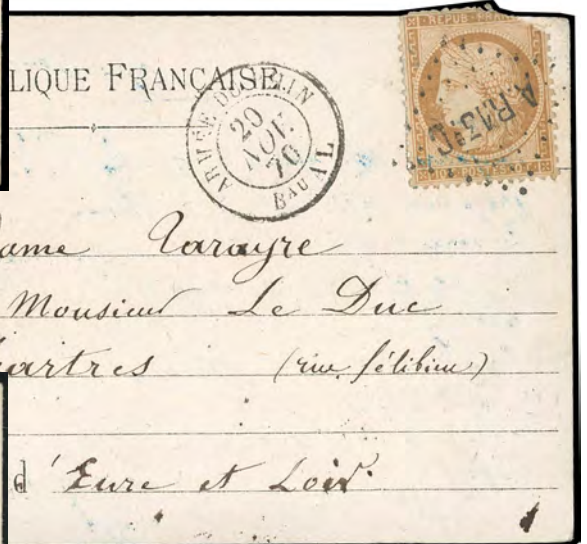 LIQUE FRANÇAISE
ARMÉE DU RHIN
20
NOV.
70
BAU AL
REPUB FRANC
A.R.13ᵉC
10 POSTES 10
ame Tarayre
Monsieur Le Duc
artres (rue félibien)
d'Eure et Loir